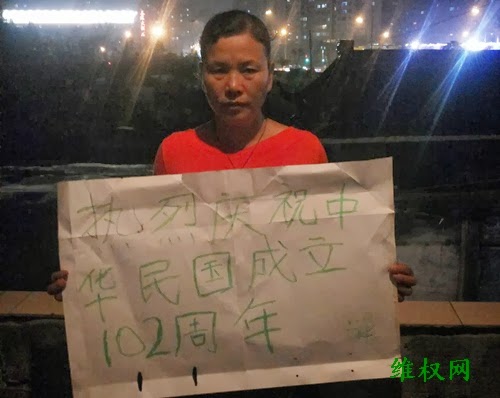 热烈庆祝中
华民国成立
102周年
维权网